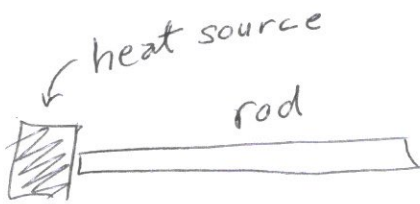 heat source
rod